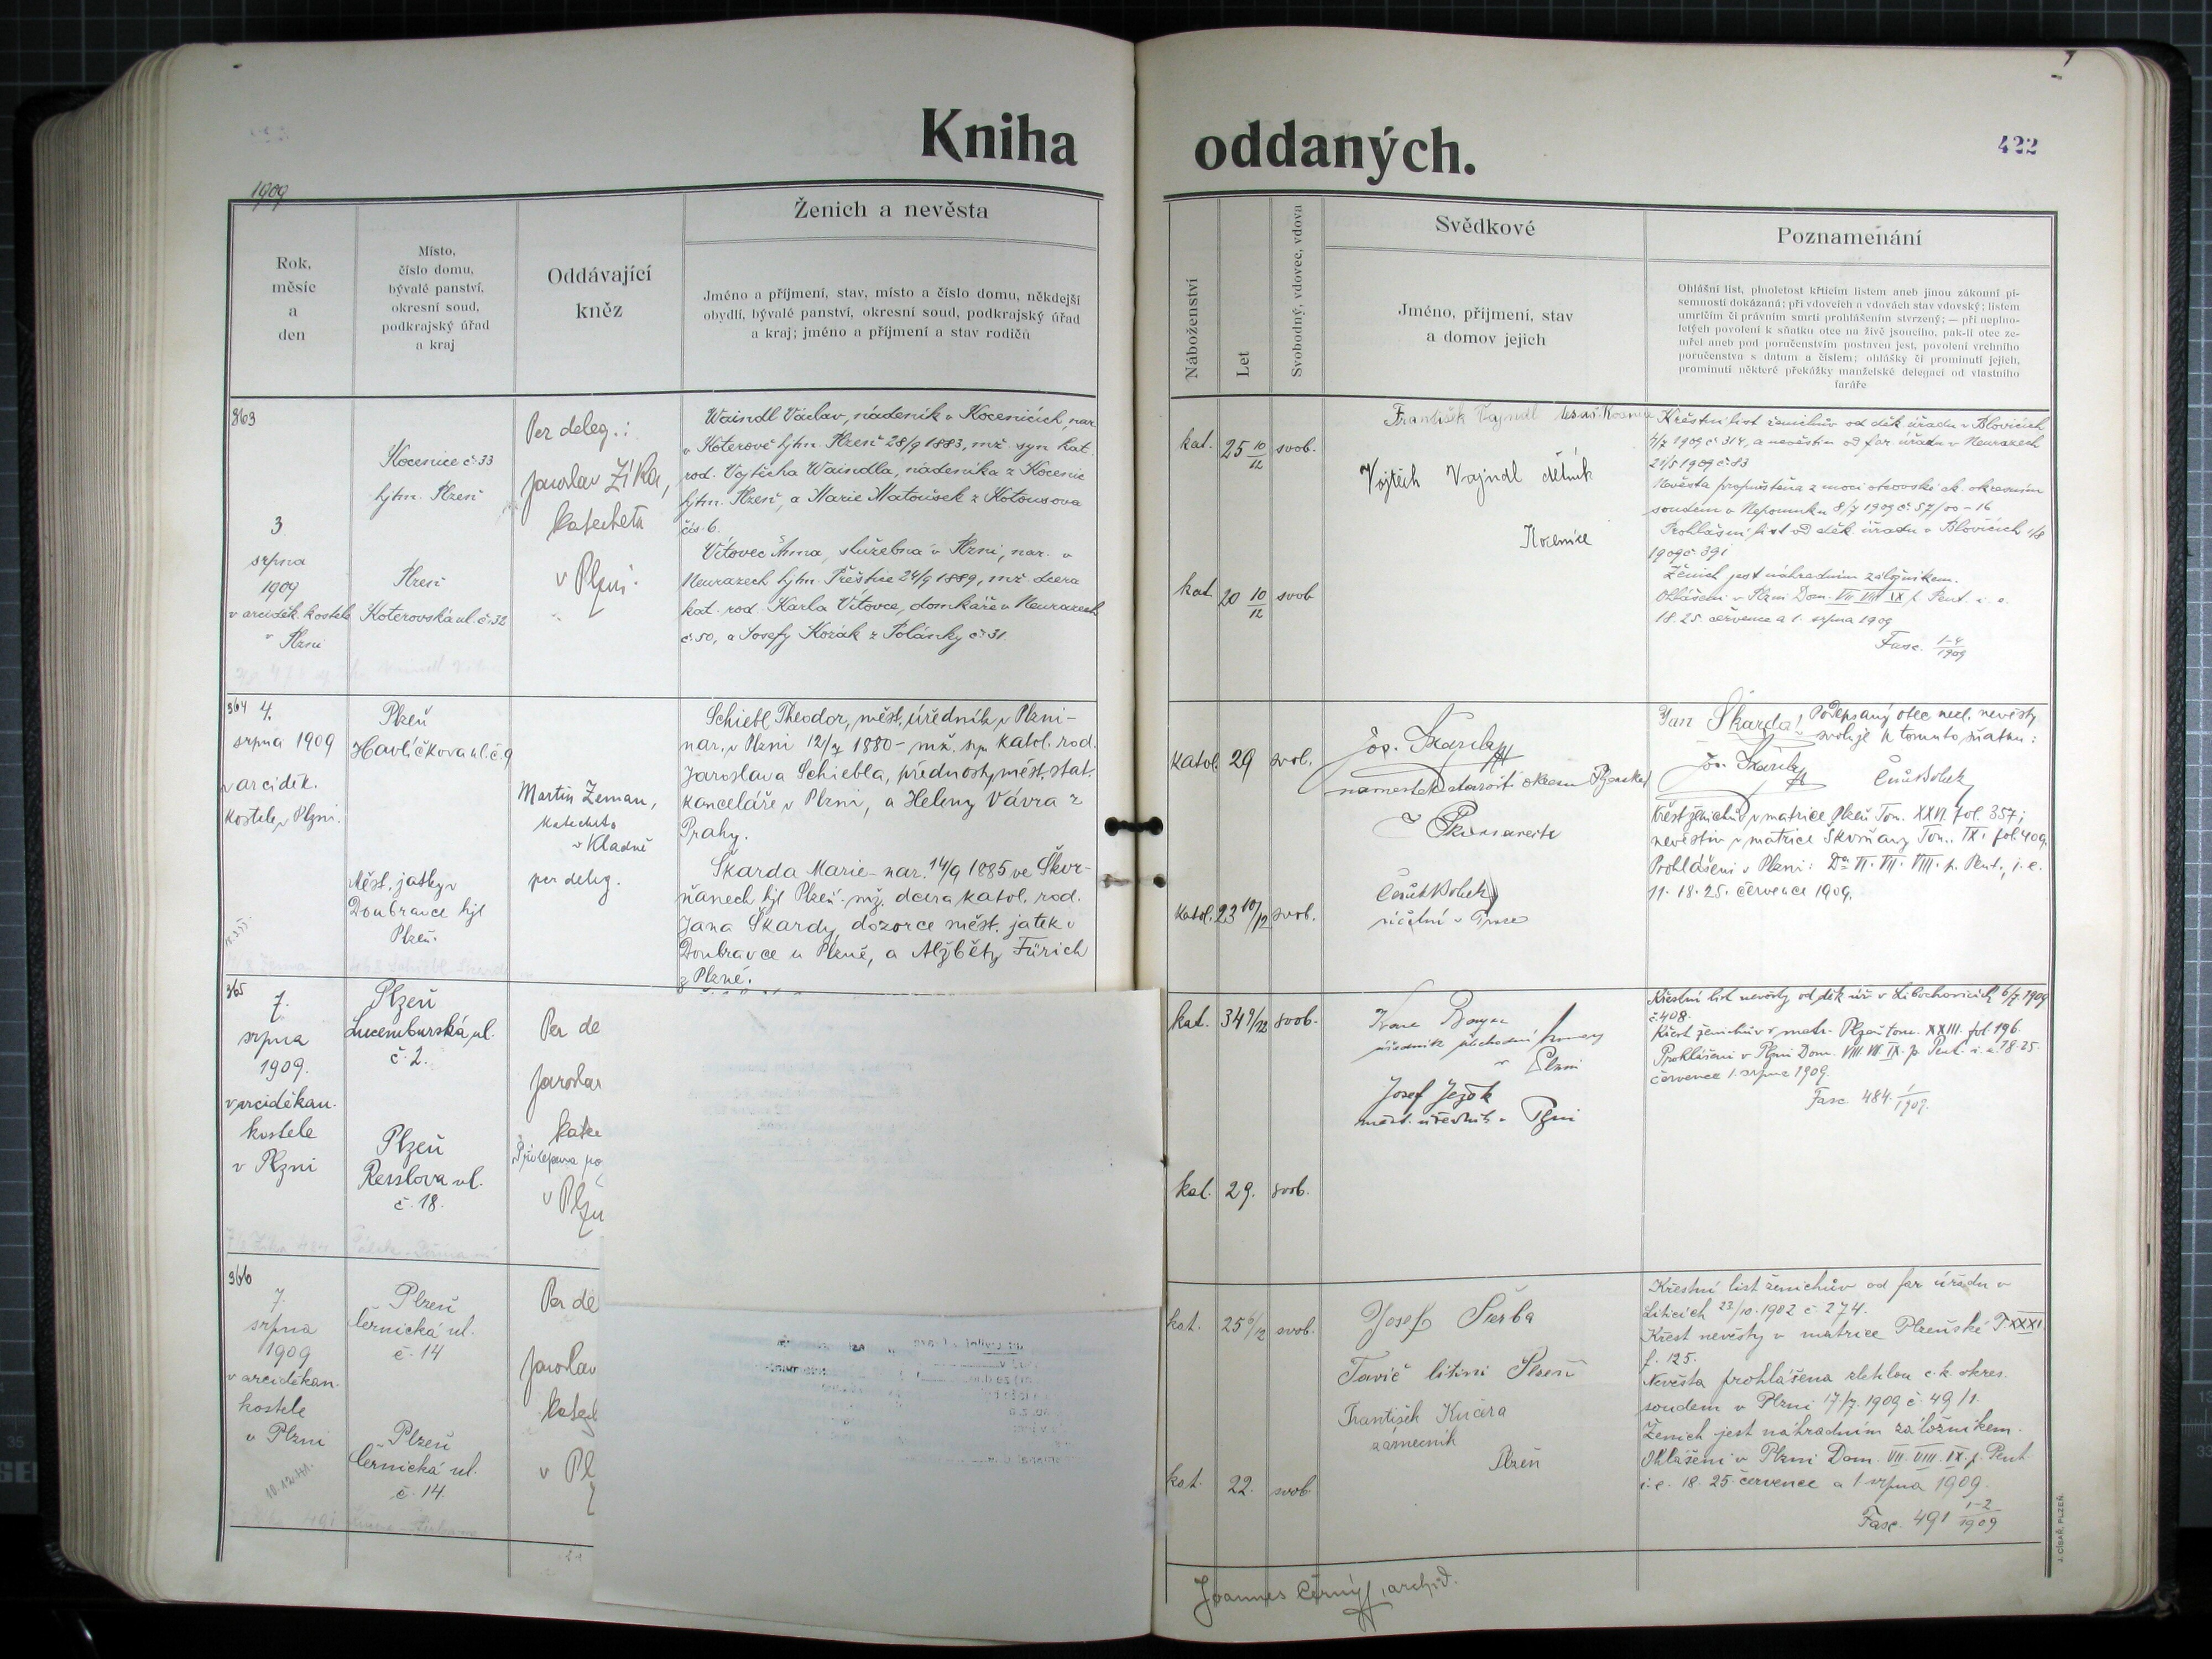 Kniha oddaných.
422
1909
Rok,
měsíc
a
den
Místo,
číslo domu,
bývalé panství,
okresní soud,
podkrajský úřad
a kraj
Oddávající
kněz
Ženich a nevěsta
Jméno a příjmení, stav, místo a číslo domu, někdejší
obydlí, bývalé panství, okresní soud, podkrajský úřad
a kraj; jméno a příjmení a stav rodičů
Náboženství
Let
Svobodný, vdovec, vdova
Svědkové
Jméno, příjmení, stav
a domov jejich
Poznamenání
Ohlášní list, plnoletost křticím listem aneb jinou zákonní pí-
semností dokázaná; při vdovcích a vdovách stav vdovský; listem
umrlčím či právním smrti prohlášením stvrzený; — při neplno-
letých povolení k sňatku otce na živě jsoucího, pak-li otec ze-
mřel aneb pod poručenstvím postaven jest, povolení vrchního
poručenstva s datum a číslem; ohlášky či prominutí jejich,
prominutí některé překážky manželské delegací od vlastního
faráře
363
3
srpna
1909
v arciděk. kostele
v Plzni
Kocenice č. 33
hjtm. Plzeň
Plzeň
Koterovská ul. č. 32
Per deleg.:
Jaroslav Zíka,
katecheta
v Plzni.
Waindl Václav, nádeník v Kocenicích, nar.
v Koterově hjtm. Plzeň 28/9 1883, mž. syn kat.
rod. Vojtěcha Waindla, nádeníka z Kocenic
hjtm. Plzeň, a Marie Matoušek z Kotousova
čís. 6.
Vítovec Anna, služebná v Plzni, nar. v
Neurazech hjtm. Přeštice 24/9 1889, mž. dcera
kat. rod. Karla Vítovce, domkáře v Neurazech
č. 50, a Josefy Kozák z Polánky č. 31.
kat. 25 10/12 svob.
kat. 20 10/12 svob.
František Vajndl
Vojtěch Vajndl dělník
Kocenice
Křestní list ženichův od děk. úřadu v Blovicích
4/7 1909 č. 314, a nevěstin od far. úřadu v Neurazech
21/5 1909 č. 83
Nevěsta propuštěna z moci otcovské ck. okresním
soudem v Nepomuku 8/7 1909 č. 57/00-16
Prohlášní list od děk. úřadu v Blovicích 1/8
1909 č. 391
Ženich jest náhradním záložníkem.
Ohlášeni v Plzni Dom. VII VIII IX p. Pent. i. e.
18. 25. července a 1. srpna 1909
Fasc. 1-4/1909
364
4.
srpna 1909
v arciděk.
kostele v Plzni.
Plzeň
Havlíčkova ul. č. 9
Měst. jatky v
Doubravce hjt
Plzeň.
Martin Zeman,
katecheta
v Kladně
per deleg.
Schiebl Theodor, měst. úředník v Plzni -
nar. v Plzni 12/7 1880 - mž. syn katol. rod.
Jaroslava Schiebla, přednosty měst. stat.
kanceláře v Plzni, a Heleny Vávra z
Prahy.
Škarda Marie - nar. 14/9 1885 ve Škvr-
ňanech hjt Plzeň - mž. dcera katol. rod.
Jana Škardy, dozorce měst. jatek v
Doubravce u Plzně, a Alžběty Fürich
z Plzně.
katol. 29 svob.
katol. 23 10/12 svob.
Jos. Škarda
v Praze
Jan Škarda! Podepsaný otec nezl. nevěsty
svoluje k tomuto sňatku:
Jos. Škarda
Křest ženichův v matrice Plzeň Tom. XXVI. fol. 357;
nevěstin v matrice Škvrňany Tom. IX. fol. 409.
Prohlášeni v Plzni: Da VI. VII. VIII. p. Pent., i. e.
11. 18. 25. července 1909.
365
7.
srpna
1909.
v arciděkan.
kostele
v Plzni
Plzeň
Lucemburská ul.
č. 2.
Plzeň
Resslova ul.
č. 18.
Per de
Jaroslav
kate
v Plzn
kat. 34 9/12 svob.
kat. 29. svob.
v Plzni
Josef Ježek
měst. úředník v Plzni
Křestní list nevěsty od děk. úř. v Libochovicích 6/7 1909
č. 408.
Křest ženichův v matr. Plzeň tom. XXIII. fol. 196.
Prohlášeni v Plzni Dom. VII. VIII. IX. p. Pent. i. e. 18. 25.
července 1. srpna 1909.
Fasc. 484. 1/1909.
366
7.
srpna
1909
v arciděkan.
kostele
v Plzni
Plzeň
Černická ul.
č. 14
Plzeň
Černická ul.
č. 14.
Per de
Jaroslav
katech
v Pl
kat. 25 6/12 svob.
kat. 22. svob.
Josef Sierba
Tavič litiny Plzeň
František Kučera
zámečník
Plzeň
Křestní list ženichův od far. úřadu v
Liticích 23/10. 1902 č. 274.
Křest nevěsty v matrice Plzeňské T. XXXI.
f. 125.
Nevěsta prohlášena zletilou c. k. okres.
soudem v Plzni 17/7. 1909 č. 49/1.
Ženich jest náhradním záložníkem.
Ohlášeni v Plzni Dom. VII. VIII. IX. p. Pent.
i. e. 18. 25. července a 1. srpna 1909.
Fasc. 491 1-2/1909
Joannes Černý, archid.
J. CÍSAŘ, PLZEŇ.